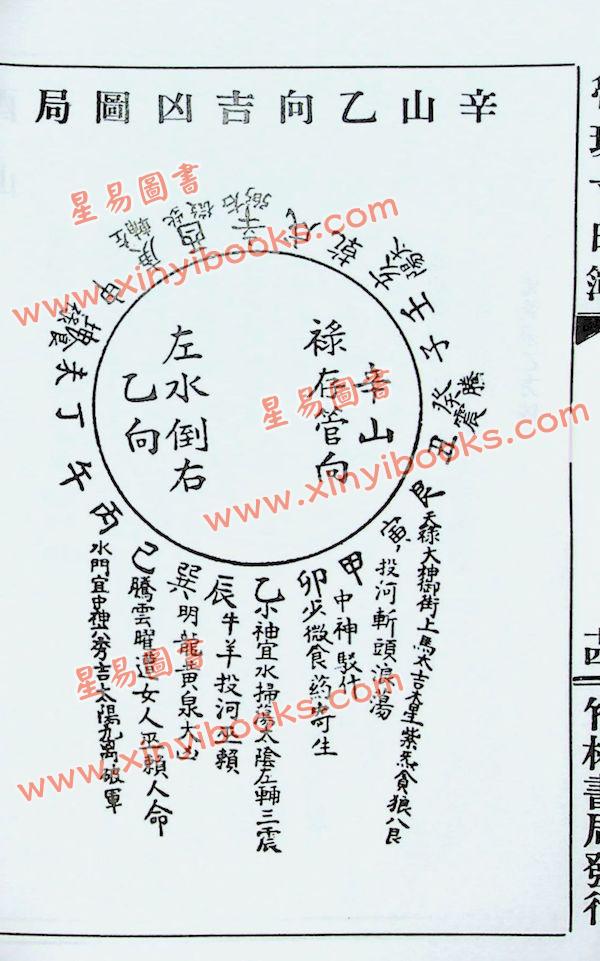 辛山乙向吉凶圖局
辛山
祿存管向
左水倒右
乙向
戌
乾
亥
壬
子
癸
丑
艮 天祿大神御街上馬太吉木星紫炁貪狼八艮
寅 投河斬頭浪蕩
甲 中神駁什
卯 少微食葯寄生
乙 小神宜水掃蕩太陰左輔三震
辰 牛羊投河巫賴
巽 明龍黃泉大凶
巳 騰雲曜遭女人巫賴人命
丙 水門宜中神六秀吉太陽九离破軍
午
丁
未
坤
申
庚
酉
星易圖書
www.xinyibooks.com
星易圖書
www.xinyibooks.com
星易圖書
www.xinyibooks.com
星易圖書
www.xinyibooks.com
星易圖書
www.xinyibooks.com
竹林書局發行